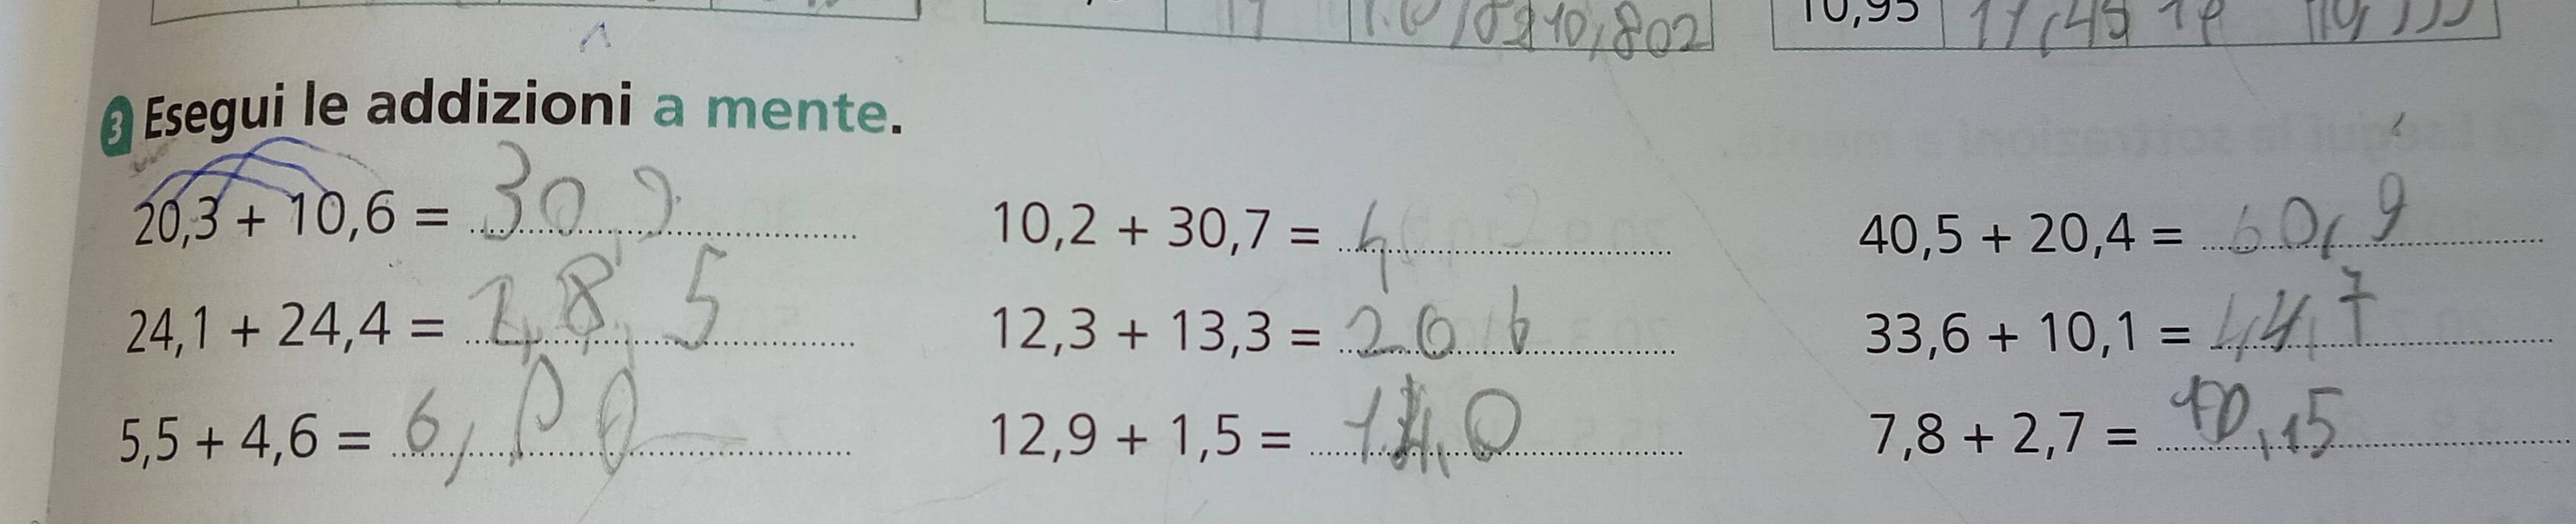 10,802 10,95 11,45
3 Esegui le addizioni a mente.
20,3 + 10,6 = 30,9 10,2 + 30,7 = 40,5 + 20,4 = 60,9
24,1 + 24,4 = 8,5 12,3 + 13,3 = 20 6 33,6 + 10,1 = 44,7
5,5 + 4,6 = 6, 12,9 + 1,5 = 7,8 + 2,7 = 10,15